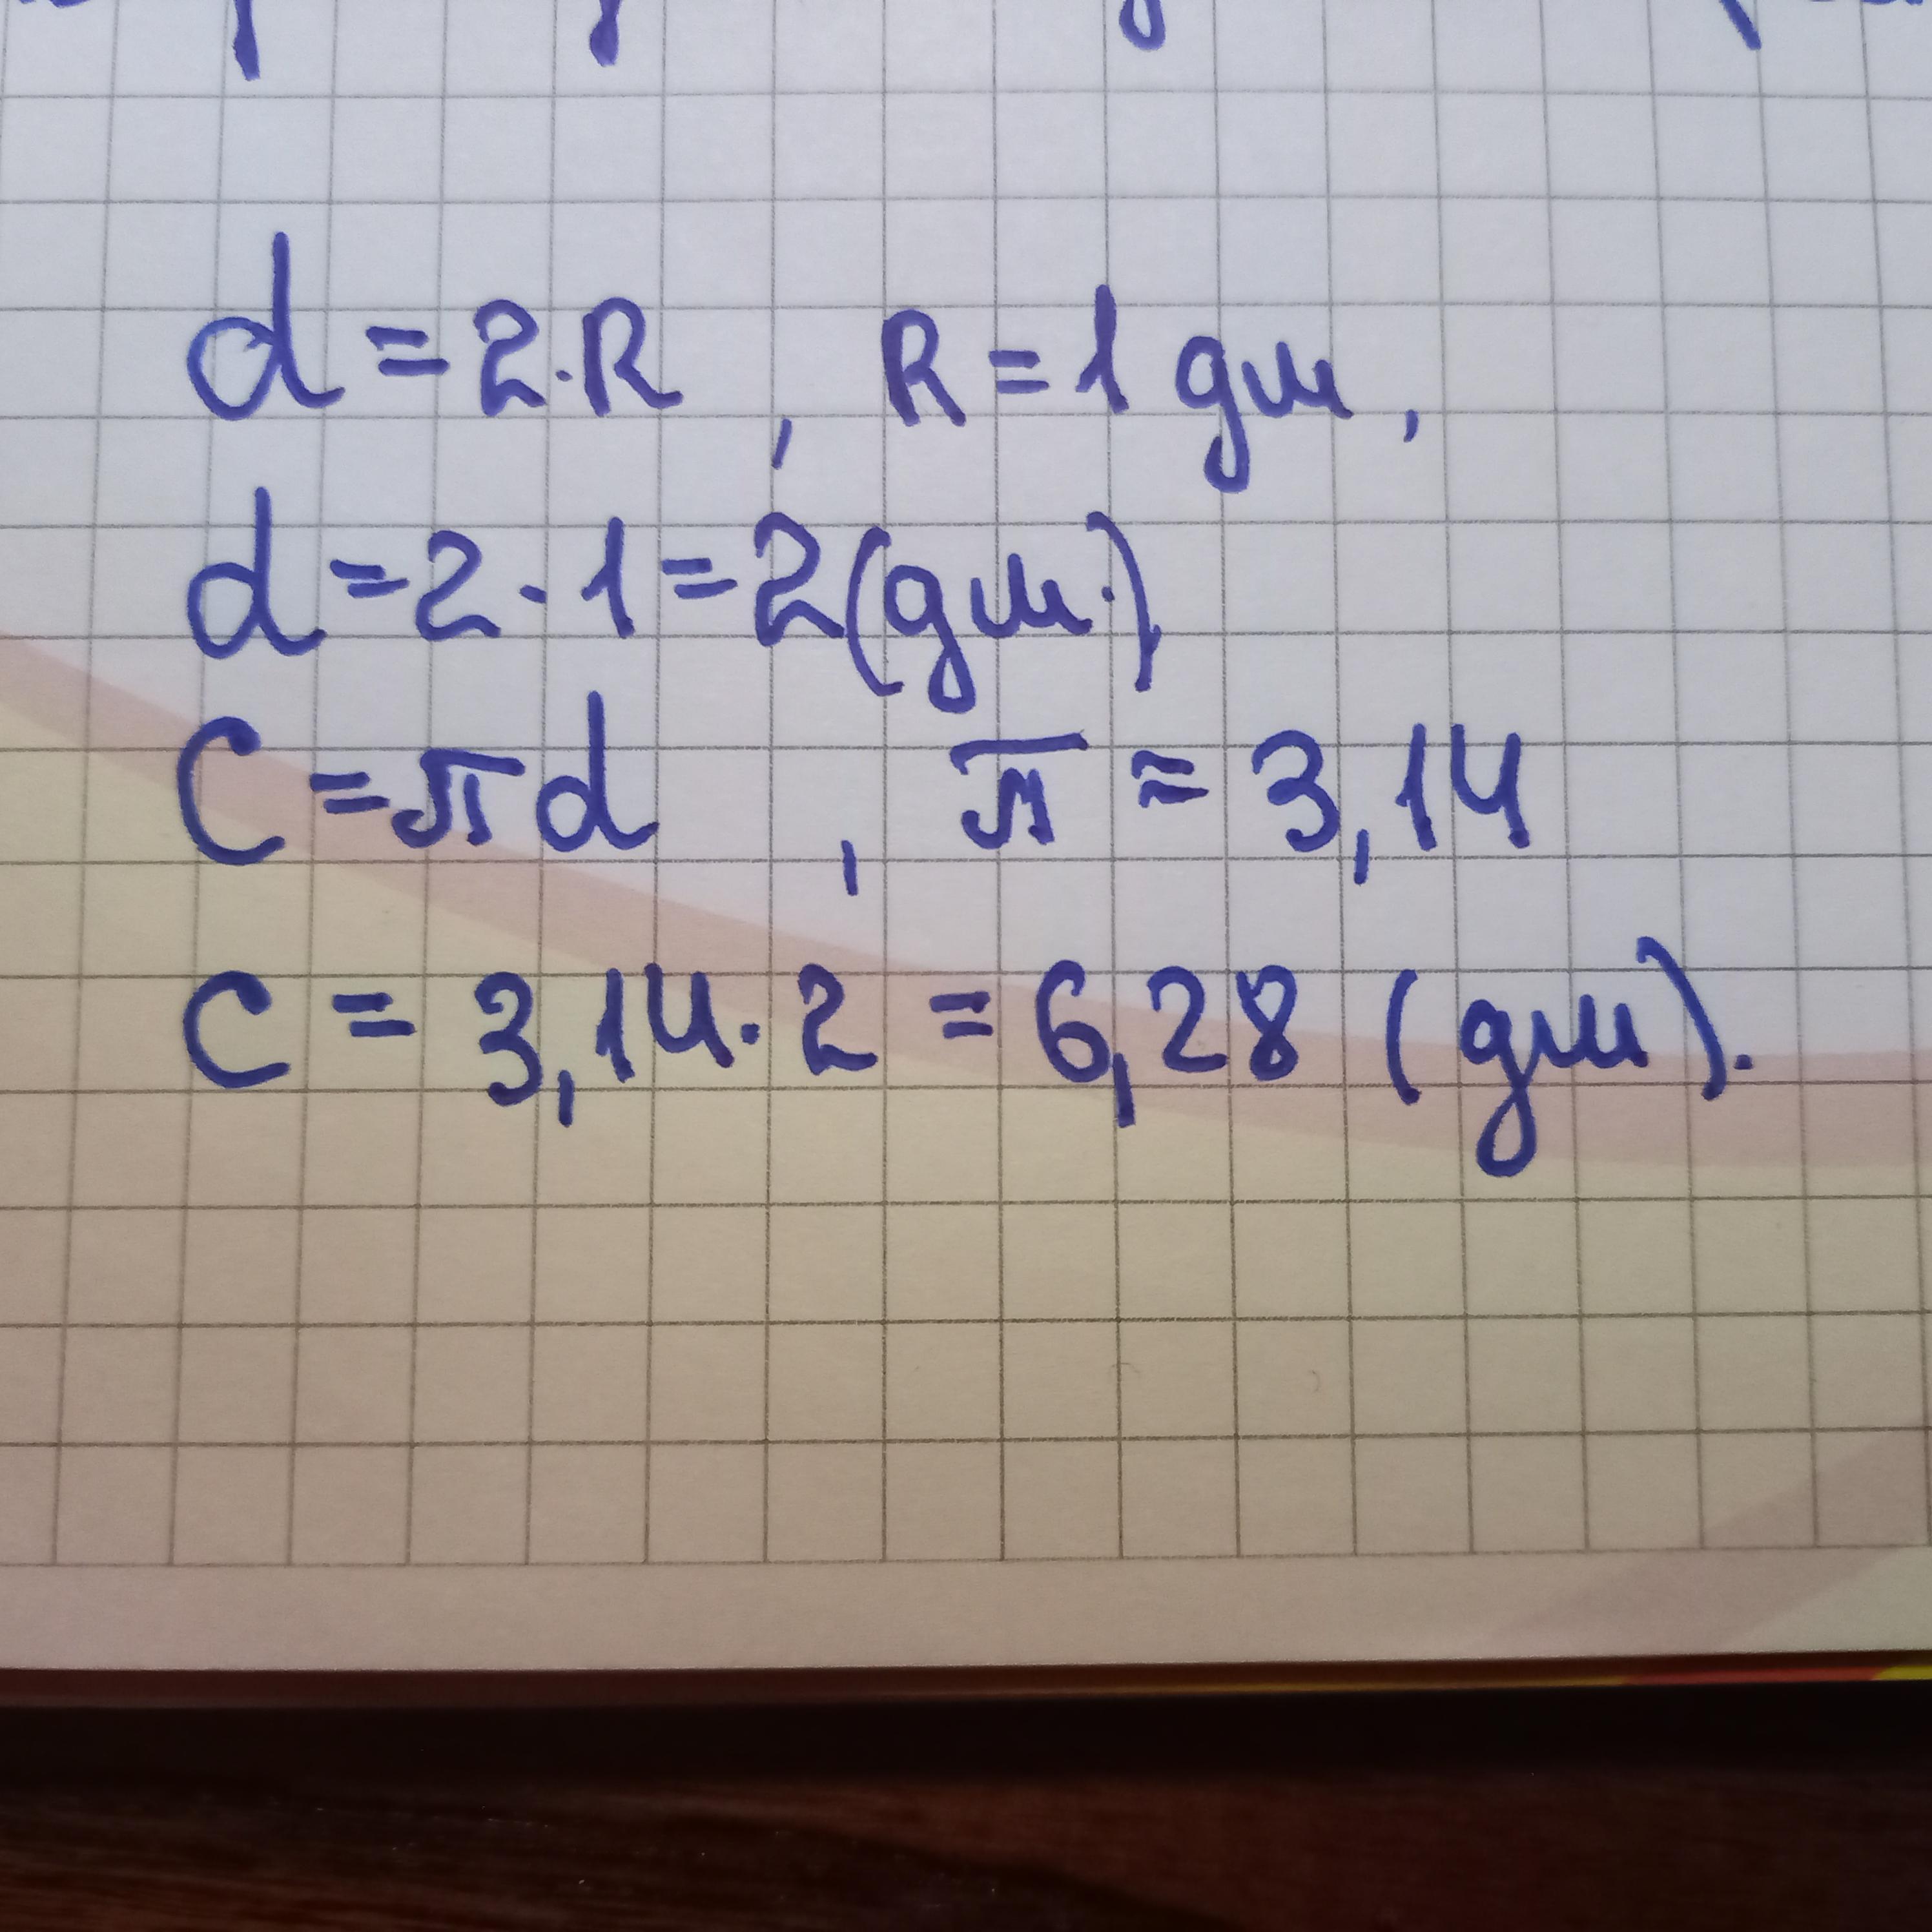 d = 2 · R , R = 1 дм ,
d = 2 · 1 = 2 (дм.)
C = π d , π ≈ 3,14
C = 3,14 · 2 = 6,28 (дм).